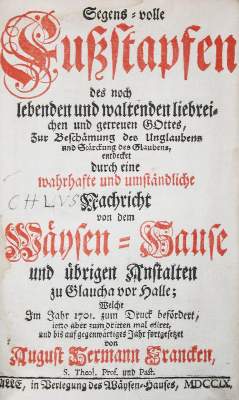 Segens-volle
Fußstapfen
des noch
lebenden und waltenden liebrei-
chen und getreuen GOttes,
Zur Beschämung des Unglaubens
und Stärckung des Glaubens,
entdecket
durch eine
wahrhafte und umständliche
Nachricht
von dem
Wäysen-Hause
und übrigen Anstalten
zu Glaucha vor Halle;
Welche
Im Jahr 1701. zum Druck befördert,
ietzo aber zum dritten mal ediret,
und bis auf gegenwärtiges Jahr fortgesetzet
von
August Hermann Francken,
S. Theol. Prof. und Past.
HALLE, in Verlegung des Wäysen-Hauses, MDCCIX.